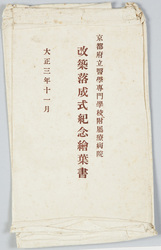 京都府立醫學專門學校附屬療病院
改築落成式紀念繪葉書
大正三年十一月